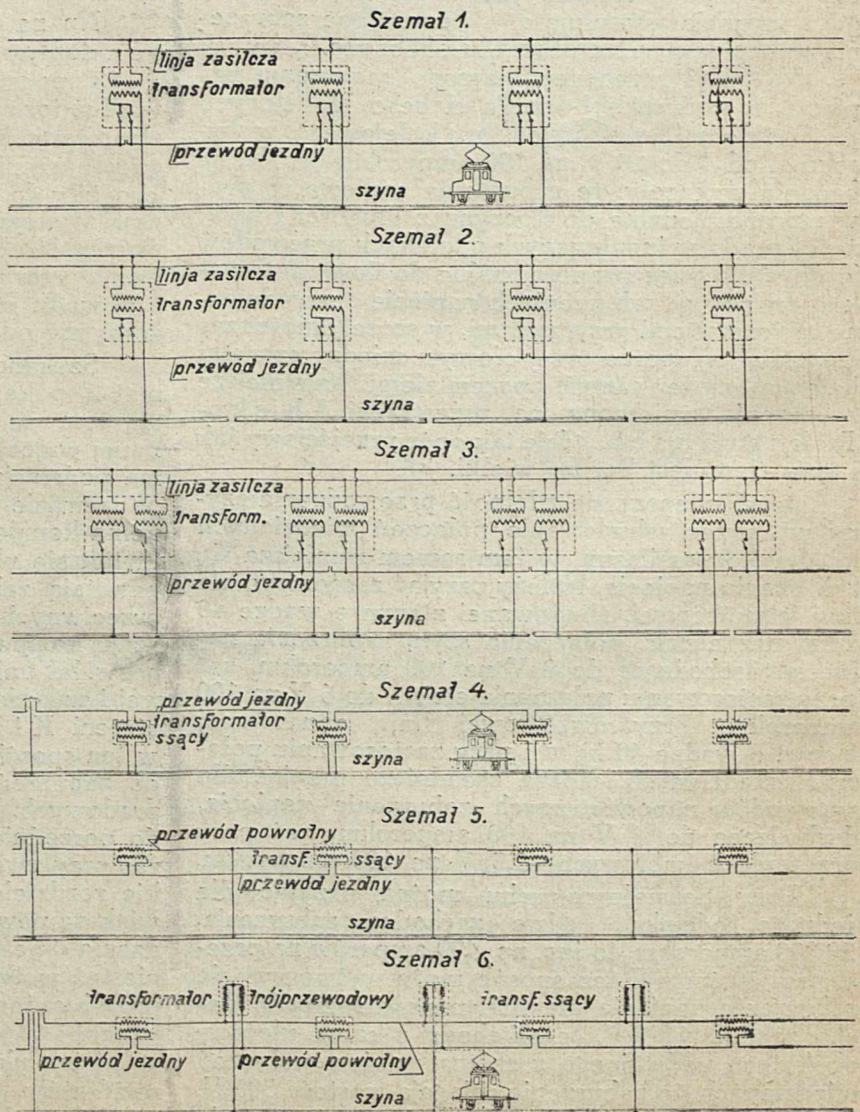 Szemat 1.
linja zasilcza
transformator
przewód jezdny
szyna
Szemat 2.
linja zasilcza
transformator
przewód jezdny
szyna
Szemat 3.
linja zasilcza
transform.
przewód jezdny
szyna
Szemat 4.
przewód jezdny
transformator
ssący
szyna
Szemat 5.
przewód powrotny
transf. ssący
przewód jezdny
szyna
Szemat 6.
transformator trójprzewodowy transf. ssący
przewód jezdny przewód powrotny
szyna